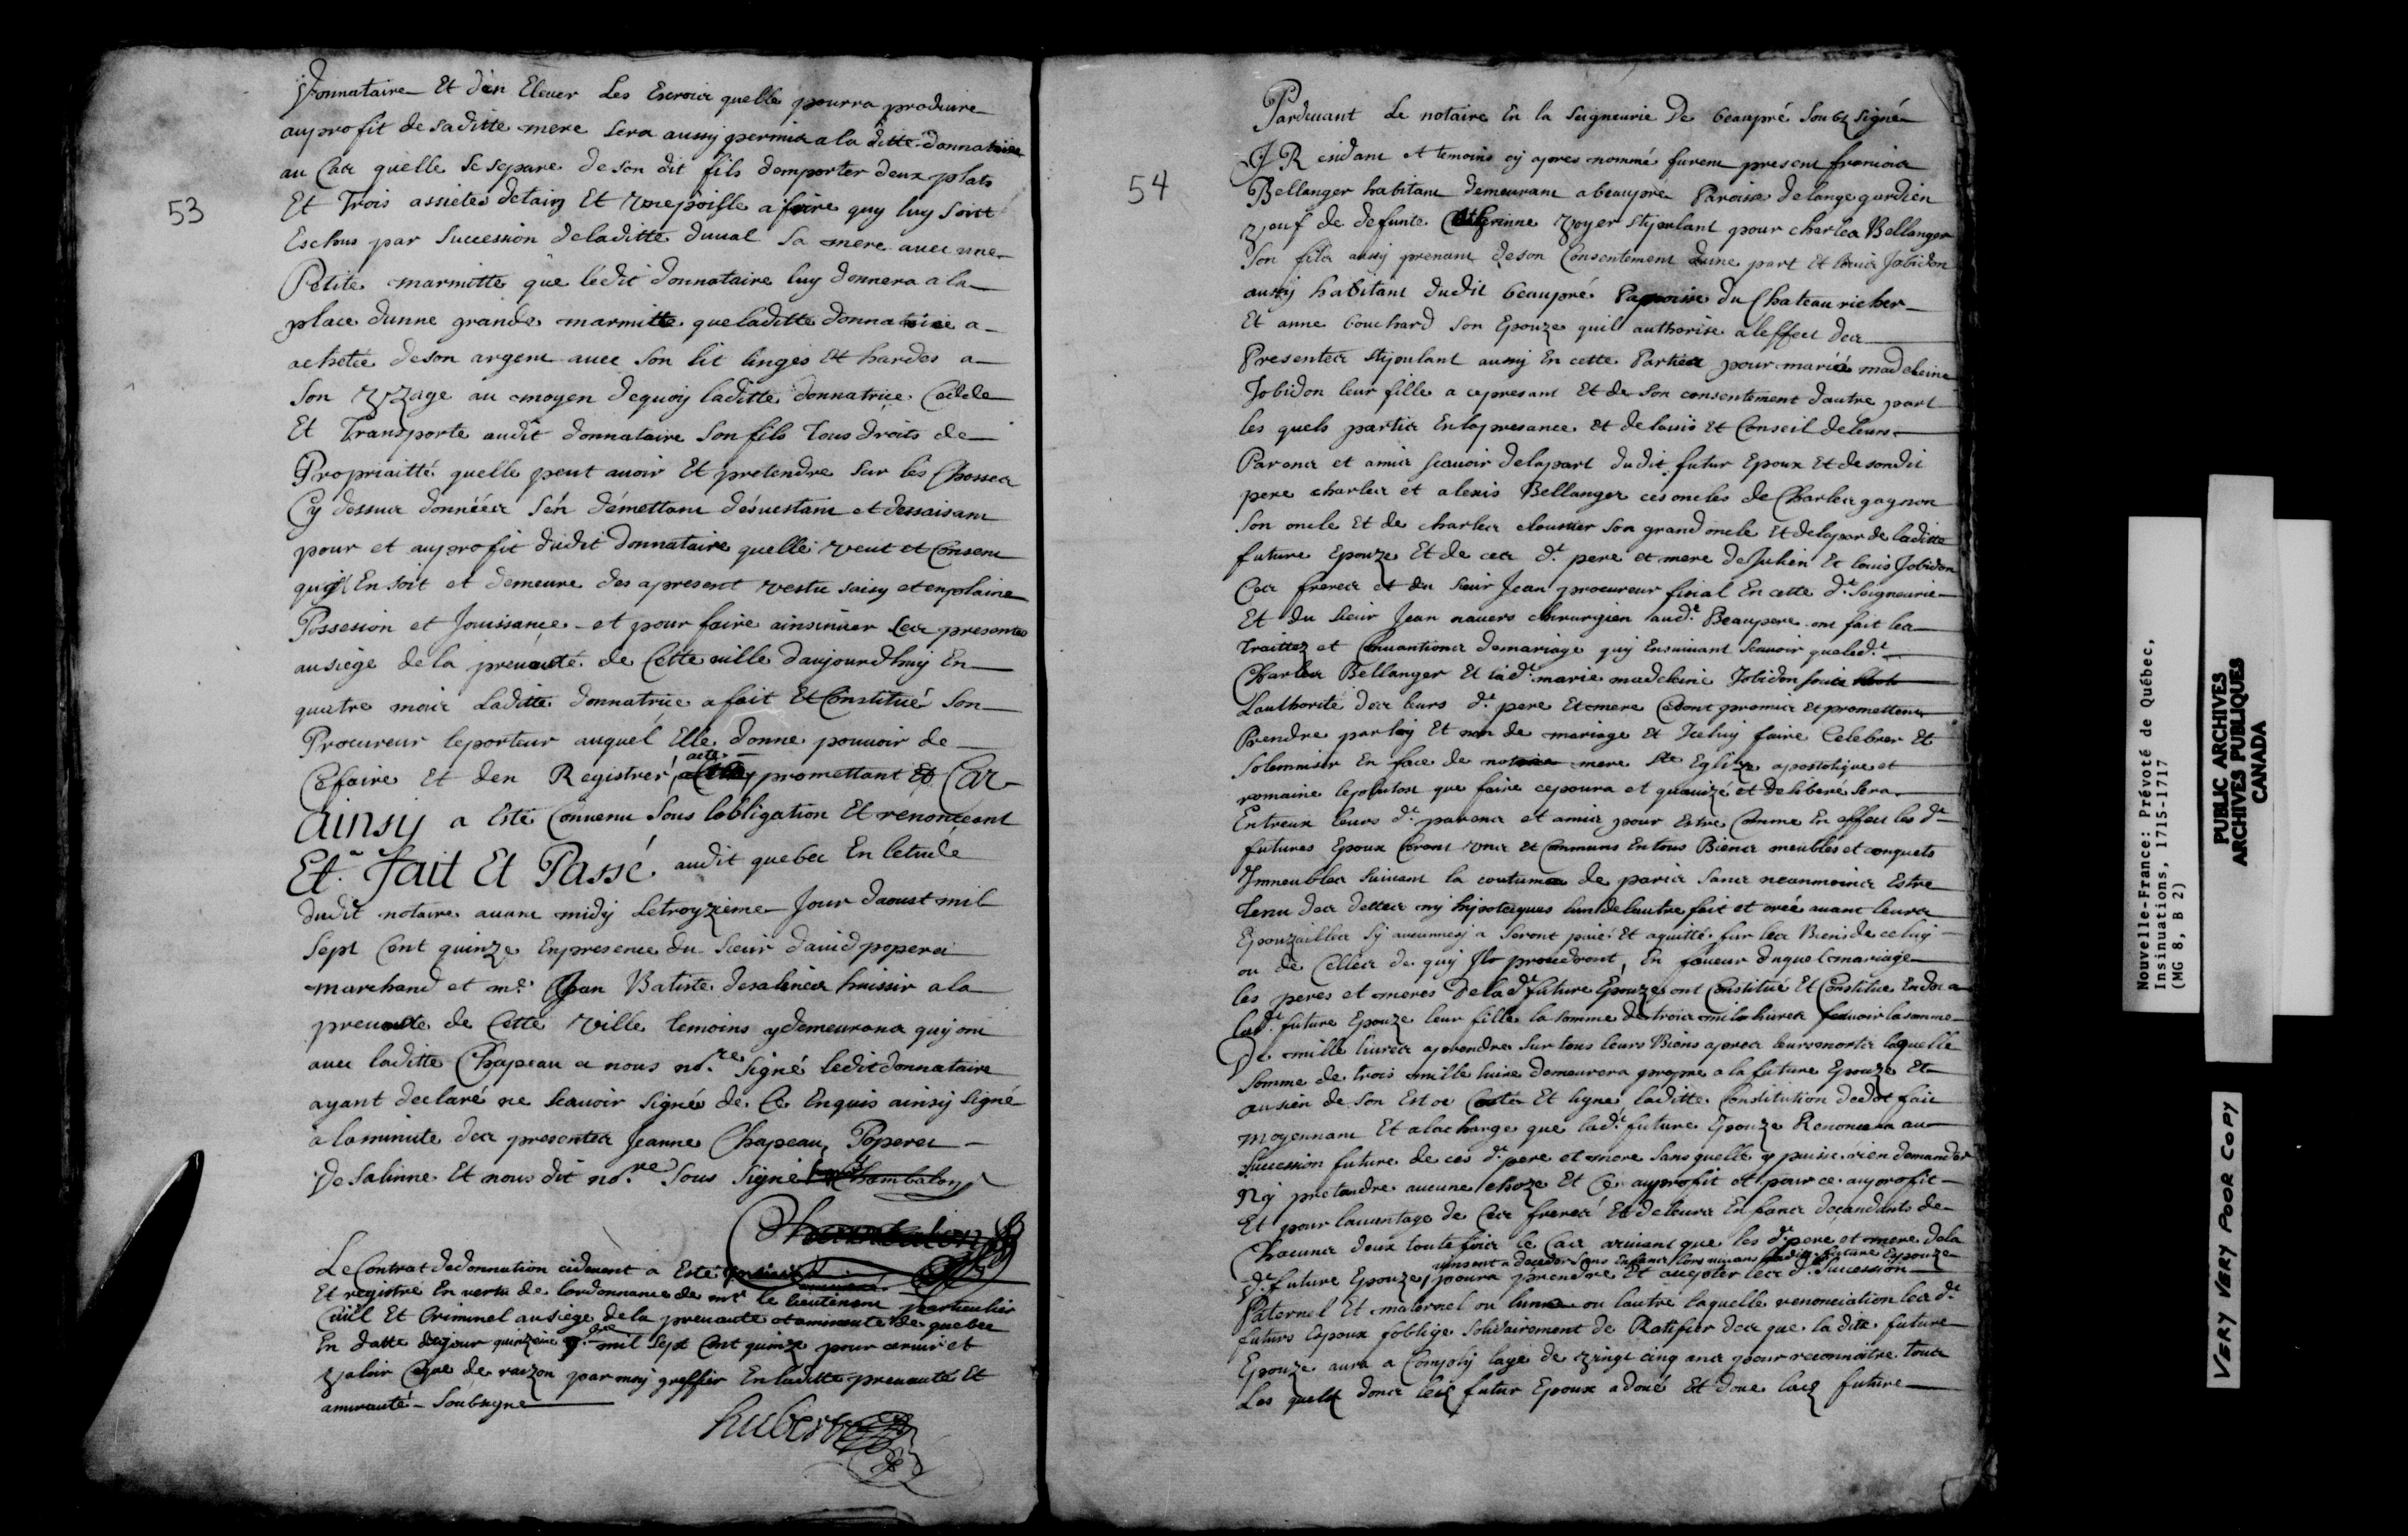 53
donnataire Et d'en Elever Les Escroia quelle pourra produire
au profit de saditte mere sera aussy permia a la ditte donnatrice
au Caa quelle se separe de son dit fils demporter deux plats
Et Trois assietes detain Et vne poisle a frire quy luy soint
Eschus par succession deladitte duual sa mere auec une
Petite marmitte que ledit donnataire luy donnera a la
place dunne grande marmitte que laditte donnatrice a
achetée de son argent auec son lit linges et hardes a
son vzage au moyen dequoy laditte donnatrice Cedde
Et Transporte audit donnataire son fils Tous droits de
Propriaitté quelle peut auoir Et pretendre sur les Chossea
Cy dessua donnééa s'en démettant désuestant et dessaisant
pour et au profit dudit donnataire quelle veut et Consent
quil En soit et demeure des apresent vestu saisy et en plaine
Possesion et Jouissance et pour faire ainsinuer lea presentes
au siege de la preuauté de Cette uille daujourdhuy En
quatre moia Laditte donnatrice a fait Et Constitué son
Procureur le porteur auquel Elle donne pouuoir de
acte
Cefaire Et den Registrer promettant Et Car
ainsy a Esté Conuenu sous lobligation Et renonceant
Et.a fait Et Passé audit quebec En letude
dudit notaire auant midy Le troyzieme Jour daoust mil
sept Cent quinze en presence du sieur dauid popera
marchand et me. Jean Batiste desalinea huissir a la
preuoste de Cette Ville temoins y demeurana quy ont
auec laditte Chapeau a nous no.re signé ledit donnataire
ayant declaré ne scauoir signé de Ce Enquis ainsy signé
a la minute dea presentea Jeanne Chapeau, Popera
De Salinne Et nous dit no.re sous signé Chambalon
Chambalon
Le Contrat dedonnation cideuant a Esté
Et registré En vertu de lordonnance de mr. le lieutenant particulier
Ciuil Et Criminel au siege de la preuauté et amirauté de quebec
En datte dujour quinzeine mil sept Cent quinze pour seruir et
Valoir Ceque de raizon par moy greffier En laditte preuauté Et
amirauté Soubzsigne
hubert
54
Pardeuant Le notaire En la Seigneurie De beaupré Soubz signé
Y Residant et temoins cy apres nommé furent present francoia
Bellanger habitant demeurant a beaupré Paroisse de lange gardien
veuf de defunte Catherinne Voyer stipulant pour charlea Bellanger
Son fila aussy prenant de son Consentement dune part Et louia Jobidon
aussy habitant dudit beaupré Paroisse du Chateau richer
Et anne bouchard son Epouze quil authorise a leffect dea
Presentea stipulant aussy En cette Partiea pour mariée madeleine
Jobidon leur fille a ce presant Et de son consentement dautre part
les quels partia En la presance et de lauis Et Conseil de leurs
Parana et amia scauoir delapart dudit futur Epoux Et de sondit
pere charlea et alexis Bellanger ces oncles de Charlea gagnon
son oncle Et de charlea cloustier son grand oncle Et delapar de laditte
future Epouze Et de cea d.t pere et mere de Julien Et louis Jobidon
Cea frerea et du sieur Jean procureur fisial En cette d.te Seigneurie
Et du sieur Jean nauers chirurgien aud.t Beaupere ont fait lea
traittez et Conuantiona demariage quy Ensuiuant Scauoir que led.t
Charlea Bellanger Et lad.te marie madeleine Jobidon soua
Lauthorité dea leurs d.t pere Et mere Cesont promia et promettent
Prendre par loy Et nom de mariage Et Iceluy faire Celebrer Et
Solemniser En face de notre mere ste Eglize apostolique et
romaine leplutost que faire cepoura et quauizé et deliberé sera
Entreux leurs d.t parana et amia pour Estre Comme En effect les d.t
futures Epoux Ceront vna et Communs En tous Biena meubles et conquets
Immeublea suiuant la coutume de paria sana neanmoina Estre
tenu dea dettea ny hipotaques lun de lautre fait et creé auant leura
Epouzaillea sy aucunnes y a seront paié Et aquitté sur lea Biens de celuy
ou de Cellea de quy Ils prouedront, En faueur duquel mariage
les peres et meres De lad.te future Epouze ont Constitué Et Constitue En dot a
lad.te future Epouze leur fille la somme de troia mile liurea scauoir la somme
De mille liurea aprendre sur tous leurs Biens aprea leurs morta laquelle
somme de trois mille liure demeurera propre a la future Epouze Et
au sien de son Estoc Costé Et ligne laditte Constitution dedot fait
moyennant Et a la charge que lad.te future Epouze Renoncera au
succession future de ces d.t pere et mere sans quelle y puisse rien demander
Ny pretandre aucune choze Et Ce au profit et pour ce au profit
Et pour lauantage de Cea frerea Et de leura Enfana decandants de
Chacuna deux toute foia le Caa ariuant que les d.t pere et mere dela
uinsent a deceder sans Enfana lors uiuans ladite future Epouze
d.te future Epouze poura prendre Et accepter lea d.t succession
Paternel Et maternel ou lunne ou lautre laquelle renonciation lea d.t
futurs Epoux soblige solidairement de Ratifier dea que la dite future
Epouze aura a Comply lage de vingt cinq ana pour reconnoitre toute
Les quelx dona led futur Epoux a doué Et doue lad future
Nouvelle-France: Prévoté de Québec,
Insinuations, 1715-1717
(MG 8, B 2)
PUBLIC ARCHIVES
ARCHIVES PUBLIQUES
CANADA
VERY VERY POOR COPY